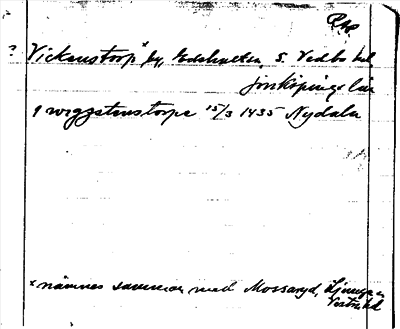 Rep
? Vickenstorp x by, Edshulten, S. Vedbo hd
Jönköpings län
i wiggetenstorpe 15/3 1435 Nydala
x nämnes samman med Mossaryd, Ljunga
Västra hd